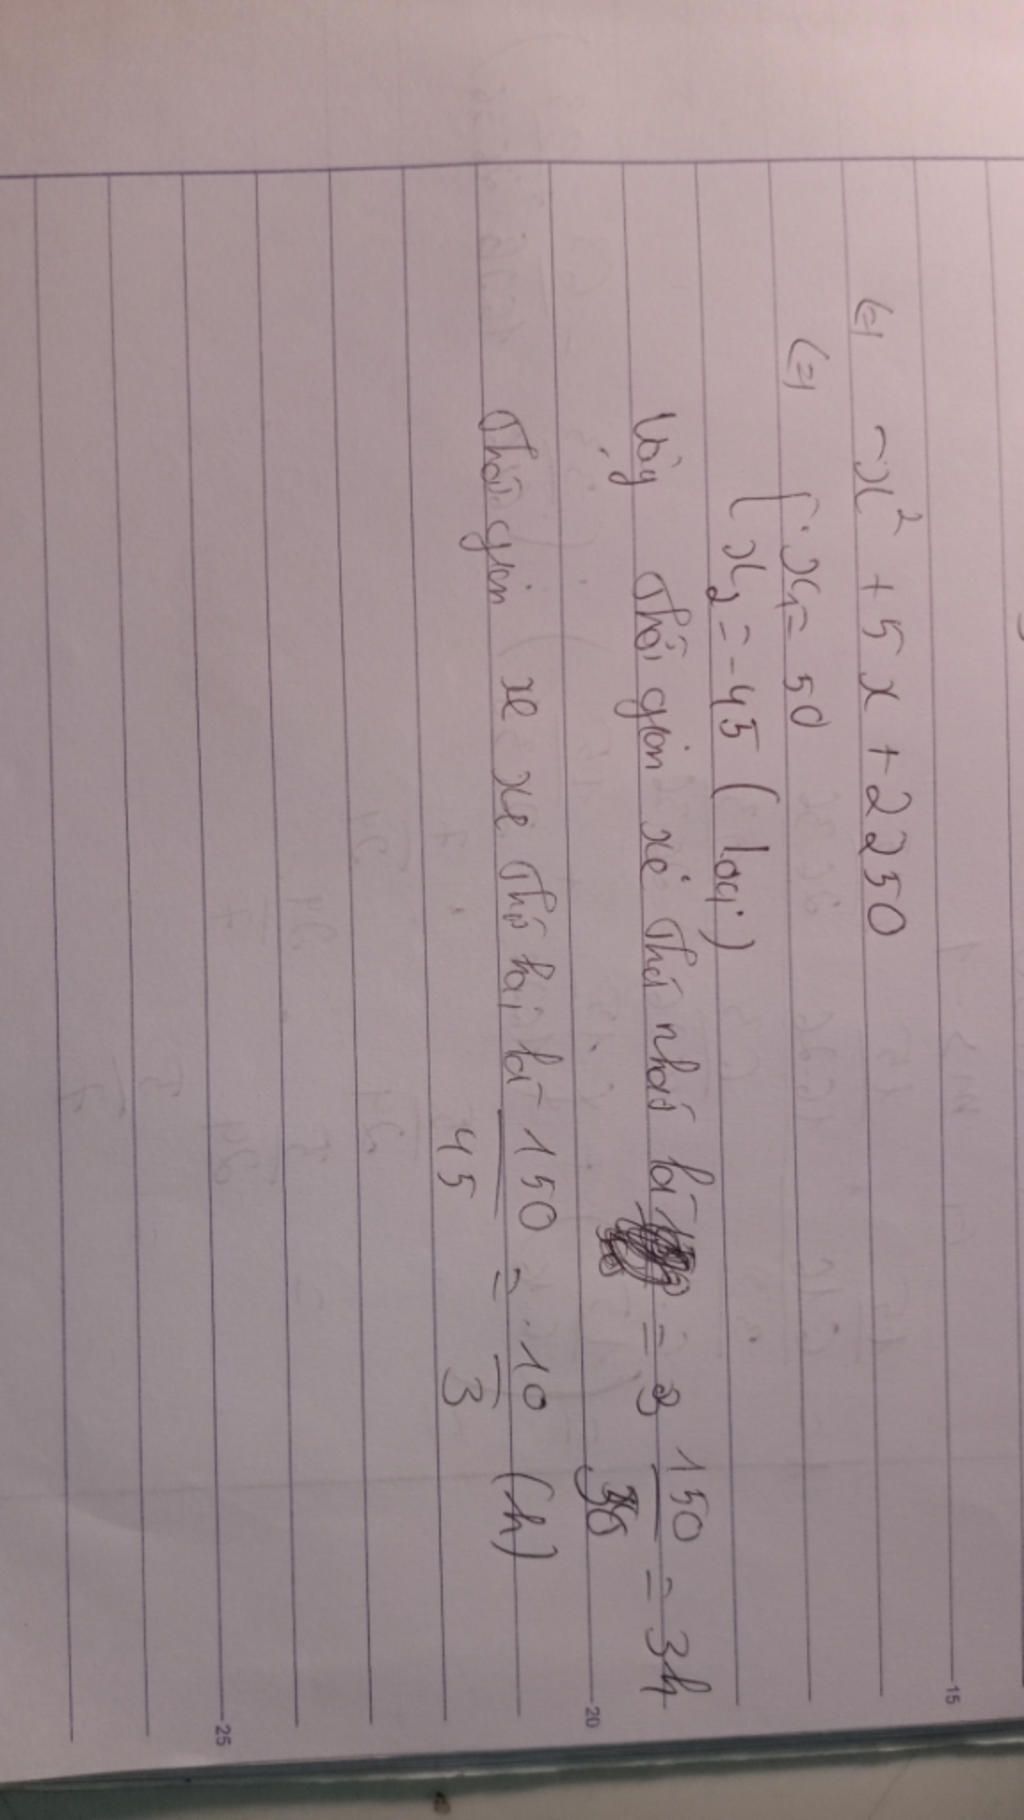 (=) -x² + 5x + 2250
(=) { x₁ = 50
x₂ = -45 (loại)
Vậy thời gian xe thứ nhất là = 150/50 = 3h
Thời gian xe xe thứ hai là 150/45 = 10/3 (h)
15
20
25